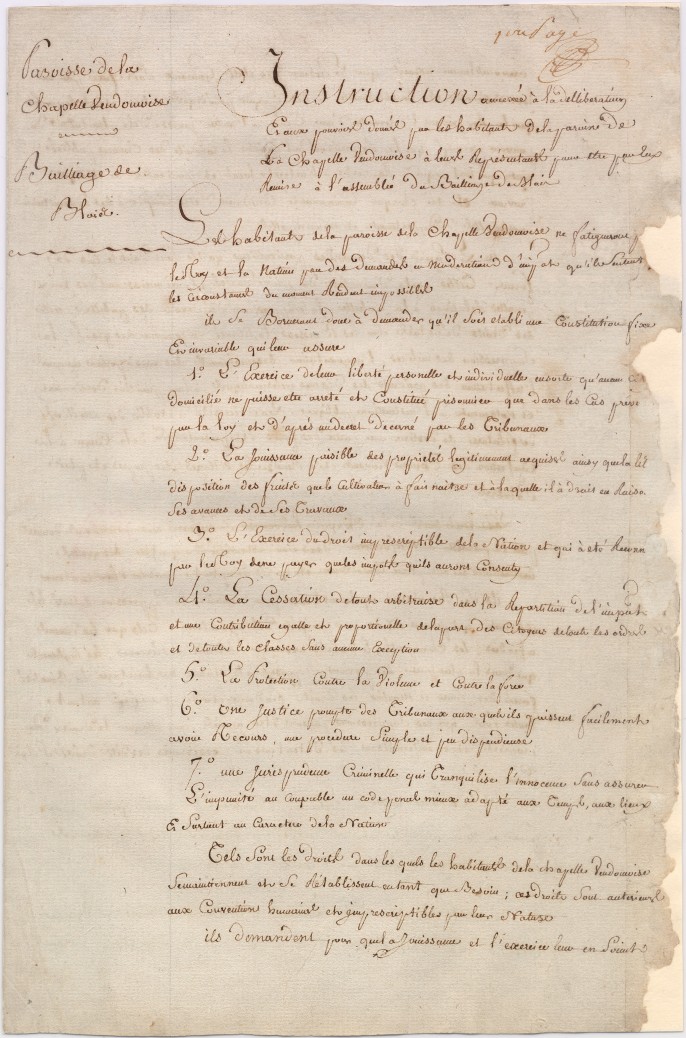 1ere Page
Paroisse de la
Chapelle Vendomoise
Bailliage de
Blois.
Instruction annexée à la délibération
Et aux pouvoirs donés par les habitans de la paroisse de
La Chapelle Vendomoise à leurs Représentants pour etre par Eux
Remise à l'assemblée du Bailliage de Blois
Les habitans de la paroisse de la Chapelle Vendomoise ne fatigueront
le Roy et la Nation par des demandes en moderation d'impot qu'ils sentent
les circonstances du moment Rendent impossibles
ils se Borneront donc à demander qu'il soit etabli une Constitution fixe
Et invariable qui leur assure
1.° L'Exercice de leur liberté personelle et individuelle ensorte qu'aucun
domicilié ne puisse etre arreté et Constitué prisonnier que dans les Cas prévu
par la loy et d'après un decret decerné par les Tribunaux
2.° La Jouissance paisible des propriétés legitimement acquises ainsy que la
disposition des fruits que la Cultivation à fait naitre et à laquelle il à droit en Raison
ses avances et de ses Travaux
3.° L'Exercice du droit imprescriptible de la Nation et qui à été Reconn
par le Roy de ne payer que les impots qu'ils auront Consenty
4.° La Cessation de tout arbitraire dans la Repartition de l'impot
et une Contribution egalle et proportionelle de la part des Citoyens de tout les ordres
et de toutes les classes sans aucune Exception
5.° La Protection Contre la Violence et Contre la force
6.° une Justice prompte des Tribunaux aux quels ils puissent facilement
avoir Recours, une procédure Simple et peu dispendieuse
7.° une Jurisprudence Criminelle qui Tranquilise l'innocence sans assurer
L'impunité au coupable un code penal mieux adapté aux Temps, aux lieux
Et surtout au Caractere de la Nation
Tels sont les droits dans les quels les habitants de la Chapelle Vendomoise
Se maintiennent et se Rétablissent en tant que Besoin ; ces droits sont anterieurs
aux Convention humaines et imprescriptibles par leur Nature
ils demandent pour que la Jouissance et l'exercice leur en soient